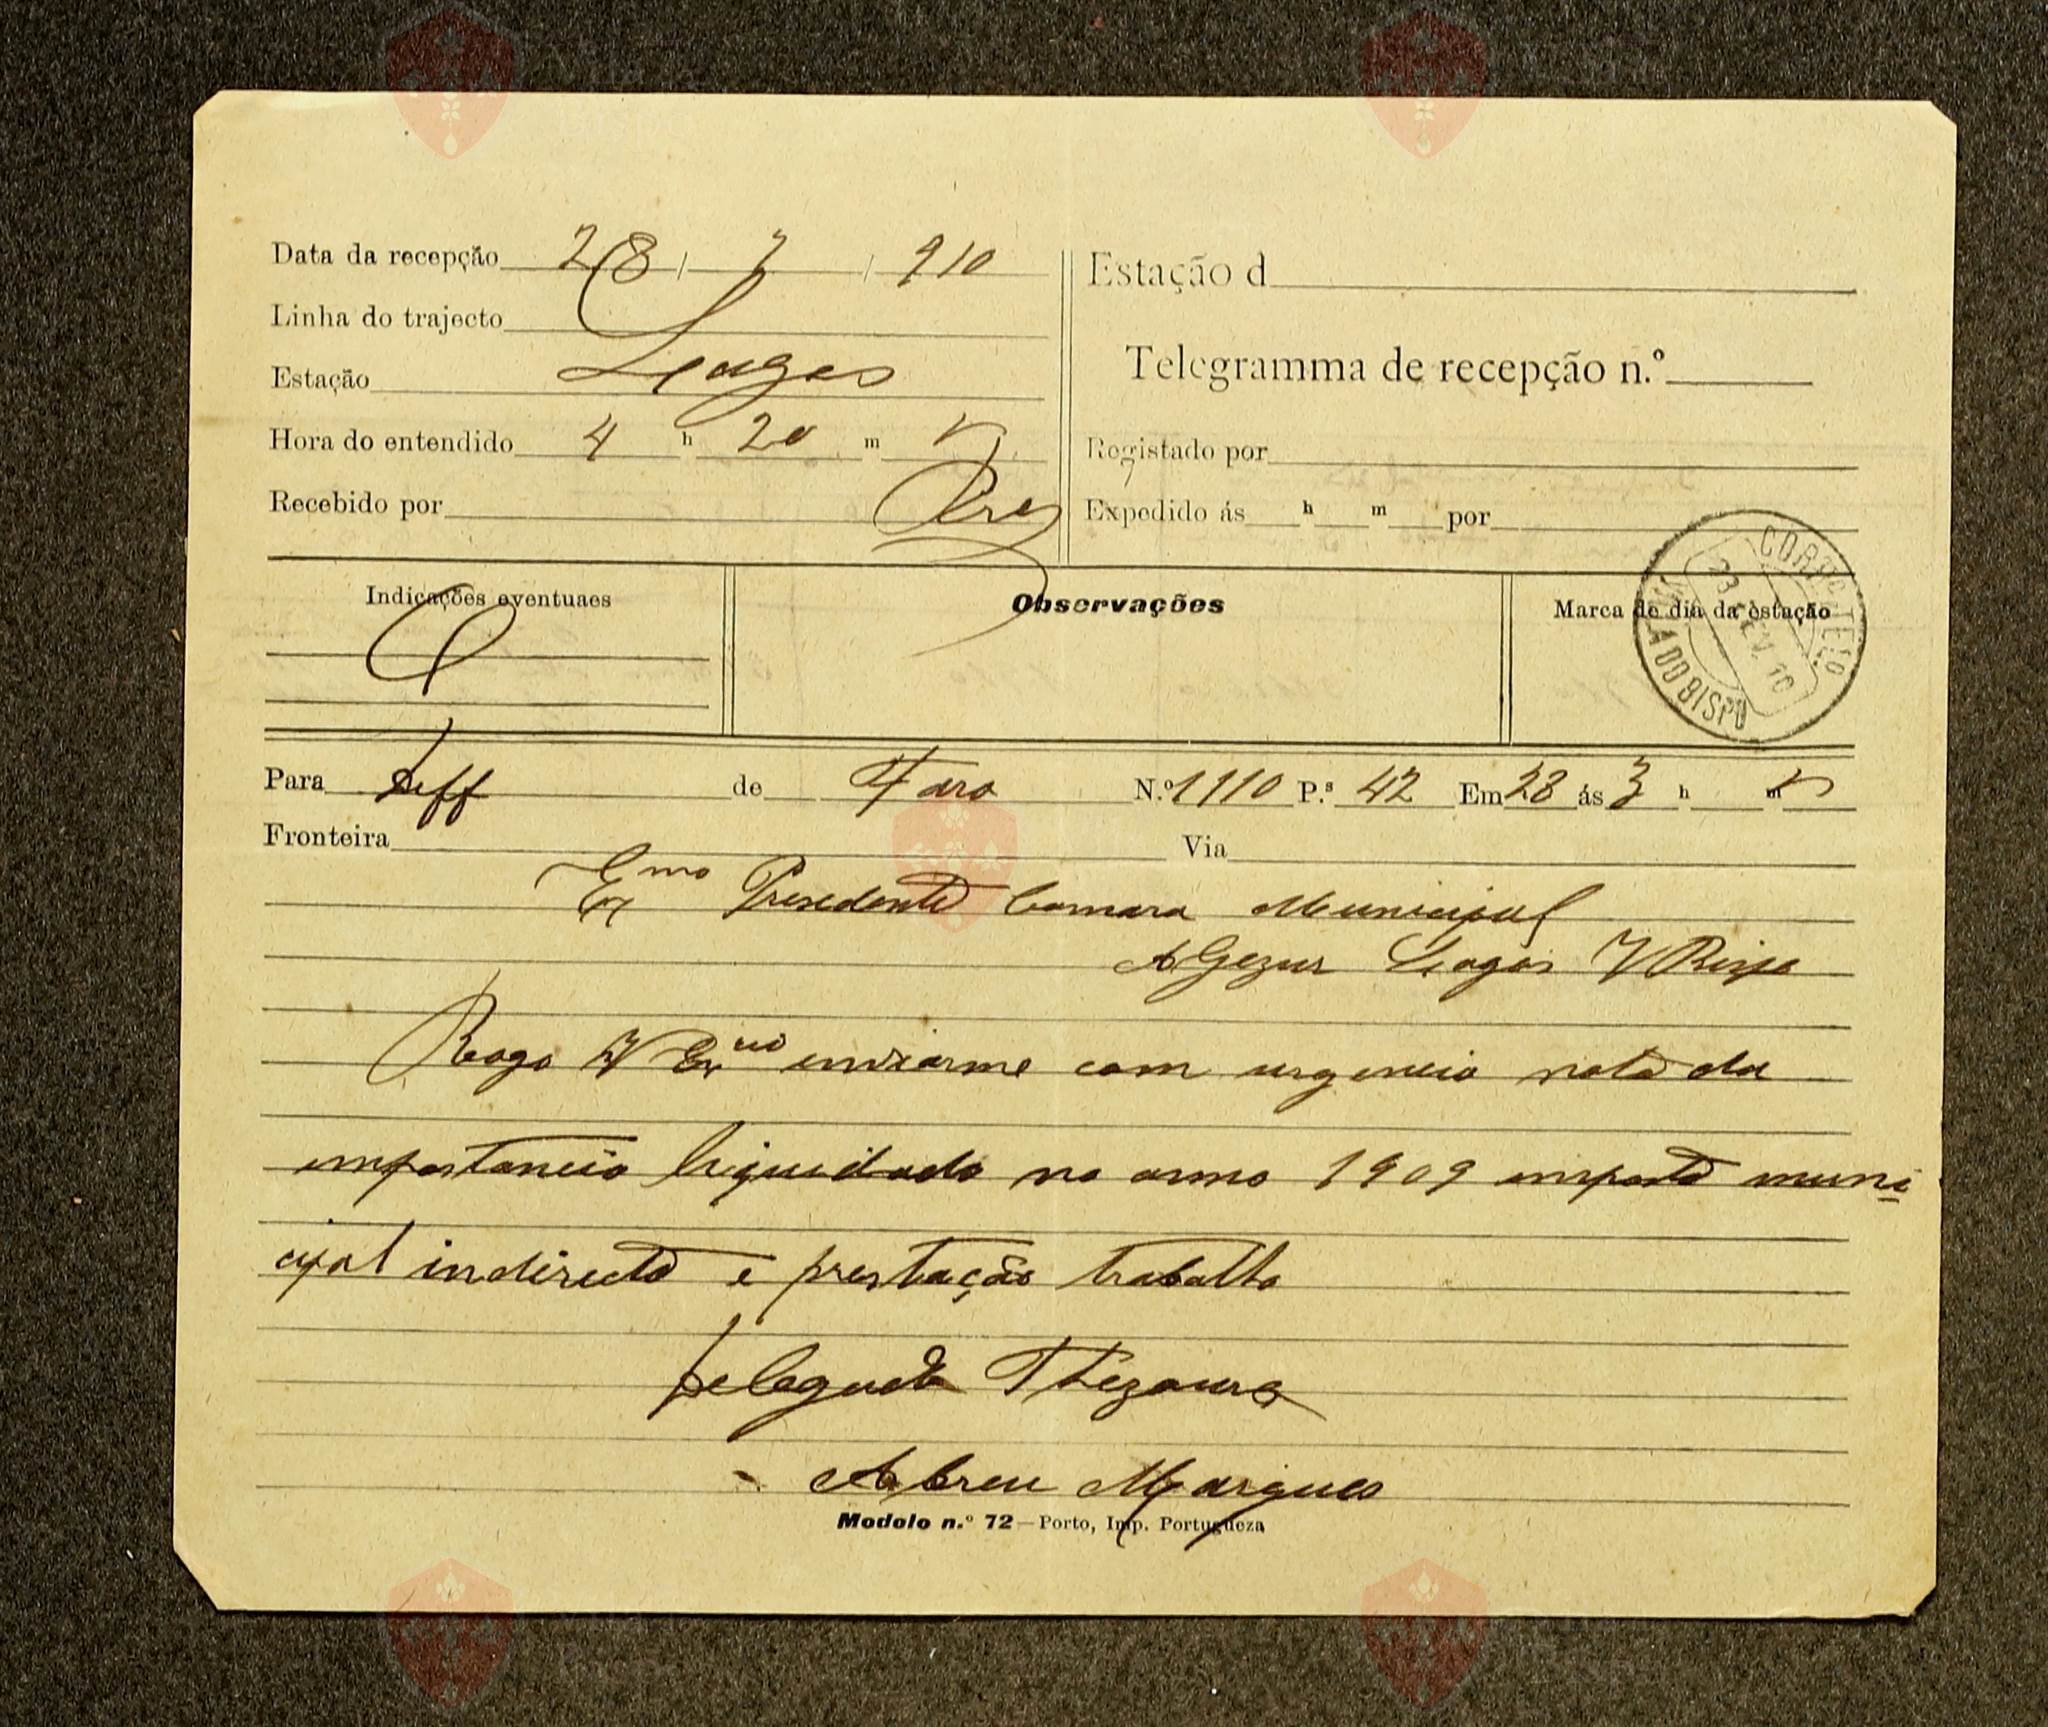 Data da recepção 28 / 2 / 910
Linha do trajecto
Estação Lagos
Hora do entendido 4 h 20 m
Recebido por Pires
Estação d
Telegramma de recepção n.º
Registado por
Expedido ás h m por
Indicações eventuaes
Observações
Marca de dia da estação
CORREO TELO
28 FEV. 10
VILA DO BISPO
Para de Faro N.º 1110 P.s 42 Em 28 ás 3 h m
Fronteira Via
Exmo Presedente Camara Municipal
Algezur Lagos V Bispo
Rogo V Excia enviarme com urgencia nota da
importancia liquidada no anno 1909 imposto muni
cipal indirecto e prestação trabalho
Delegado Thezouro
Abreu Marques
Modelo n.º 72 — Porto, Imp. Portugueza